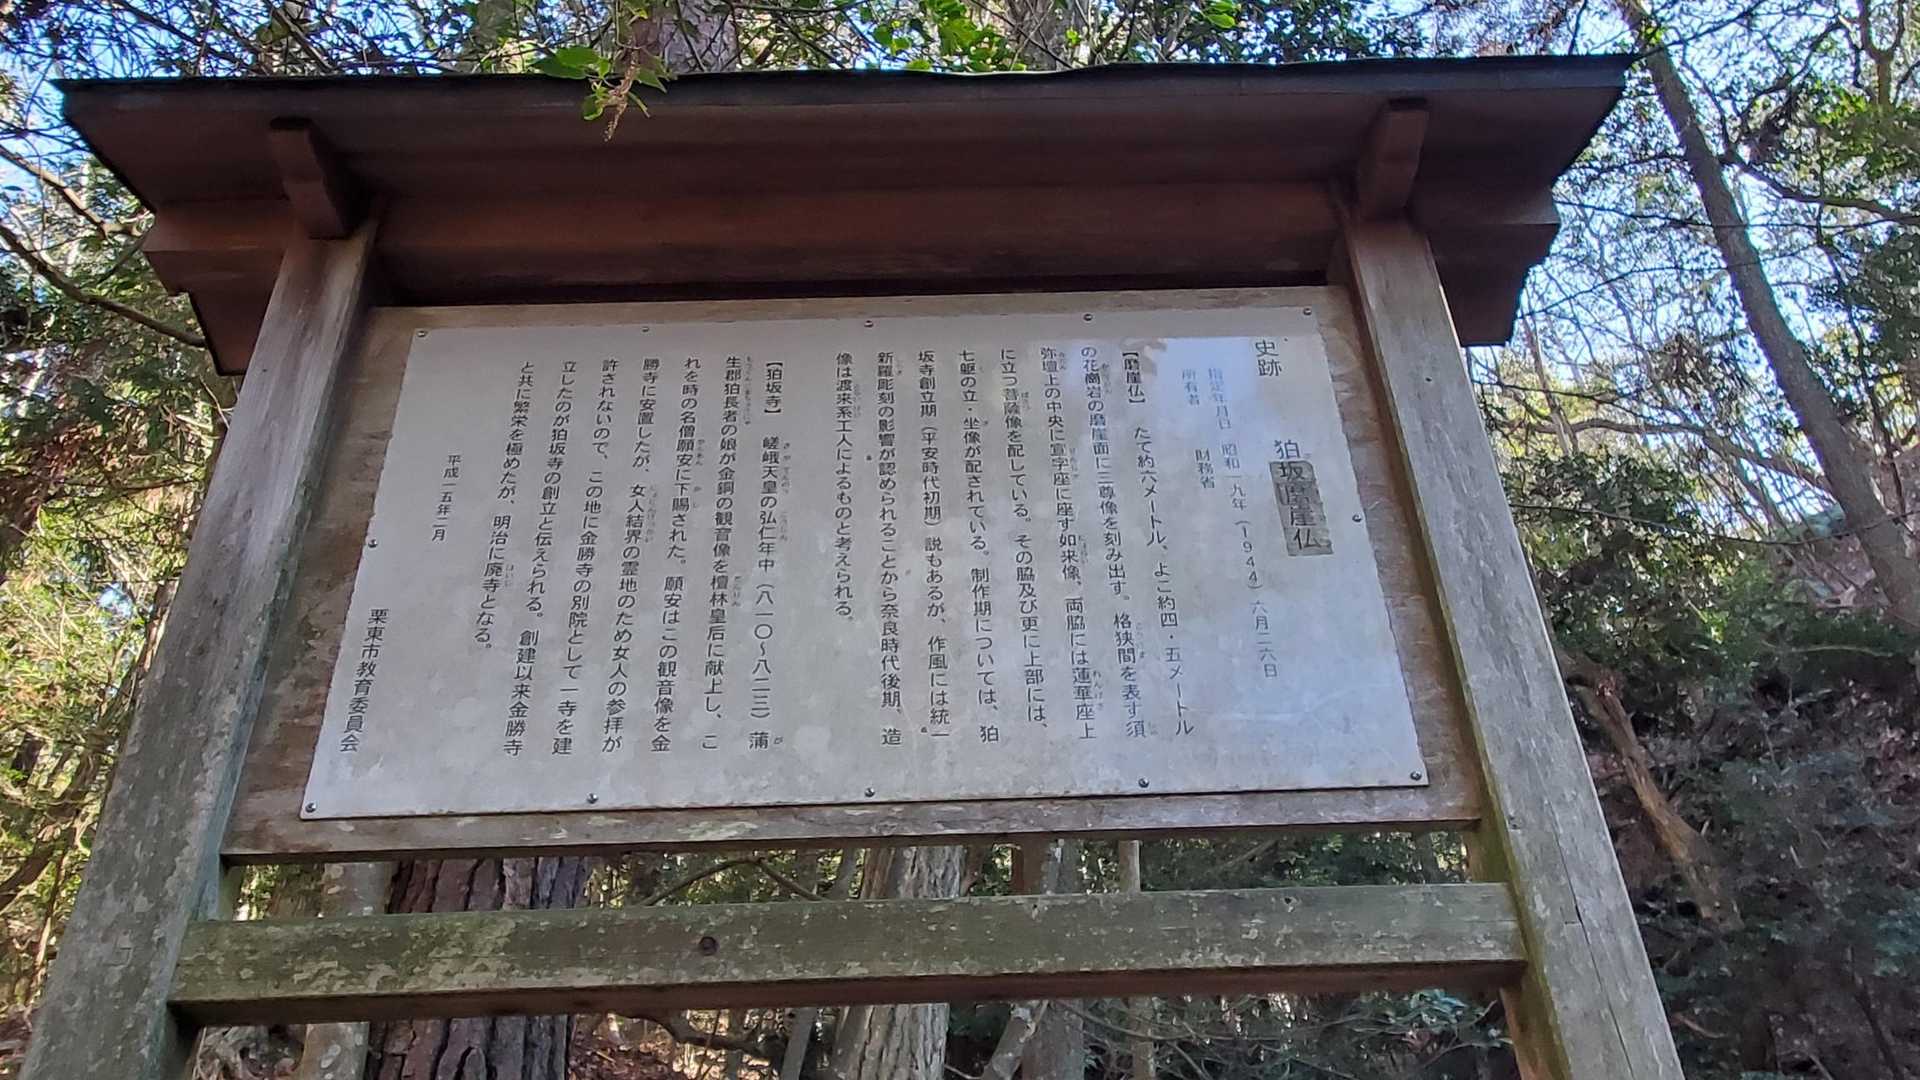 史跡
狛坂磨崖仏
指定年月日 昭和一九年（1944）六月二六日
所有者 財務省
【磨崖仏】 たて約六メートル、よこ約四・五メートル
の花崗岩の磨崖面に三尊像を刻み出す。格狭間を表す須
弥壇上の中央に宣字座に座す如来像。両脇には蓮華座上
に立つ菩薩像を配している。その脇及び更に上部には、
七躯の立・坐像が配されている。制作期については、狛
坂寺創立期（平安時代初期）説もあるが、作風には統一
新羅彫刻の影響が認められることから奈良時代後期、造
像は渡来系工人によるものと考えられる。
【狛坂寺】 嵯峨天皇の弘仁年中（八一〇～八二三）蒲
生郡狛長者の娘が金銅の観音像を檀林皇后に献上し、こ
れを時の名僧願安に下賜された。願安はこの観音像を金
勝寺に安置したが、女人結界の霊地のため女人の参拝が
許されないので、この地に金勝寺の別院として一寺を建
立したのが狛坂寺の創立と伝えられる。創建以来金勝寺
と共に繁栄を極めたが、明治に廃寺となる。
平成一五年二月
栗東市教育委員会